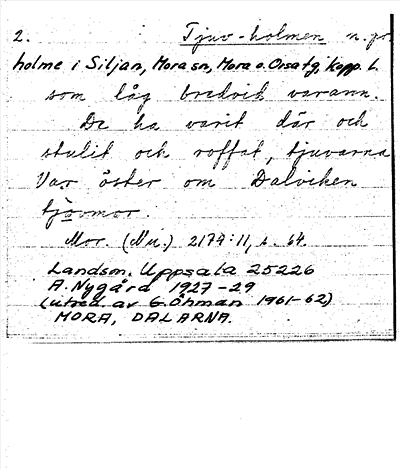 2. Tjuv-holmen n.pr
holme i Siljan, Mora sn, Mora o. Orsa tg, Kopp. L.
som låg bredvid varann.
De ha varit där och
stulit och roffat, tjuvarna
Var öster om Dalviken
Mor. (Nu.) 2174:11, s. 64.
Landsm. Uppsala 25226
A. Nygård 1927-29
(utred av G. Öhman 1961-62)
MORA, DALARNA.